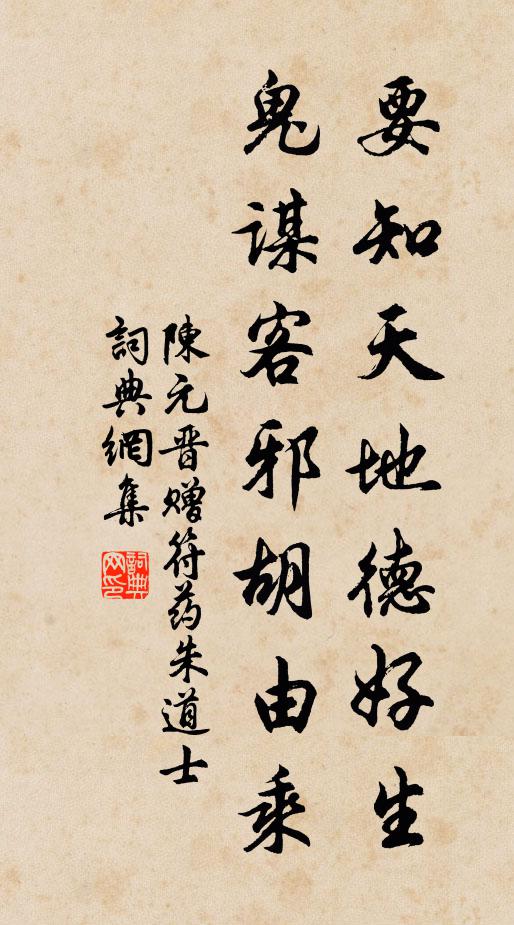 要知天地德好生
鬼謀客邪胡由乘
陳元晋赠符药朱道士
詞典網集
詞典网印